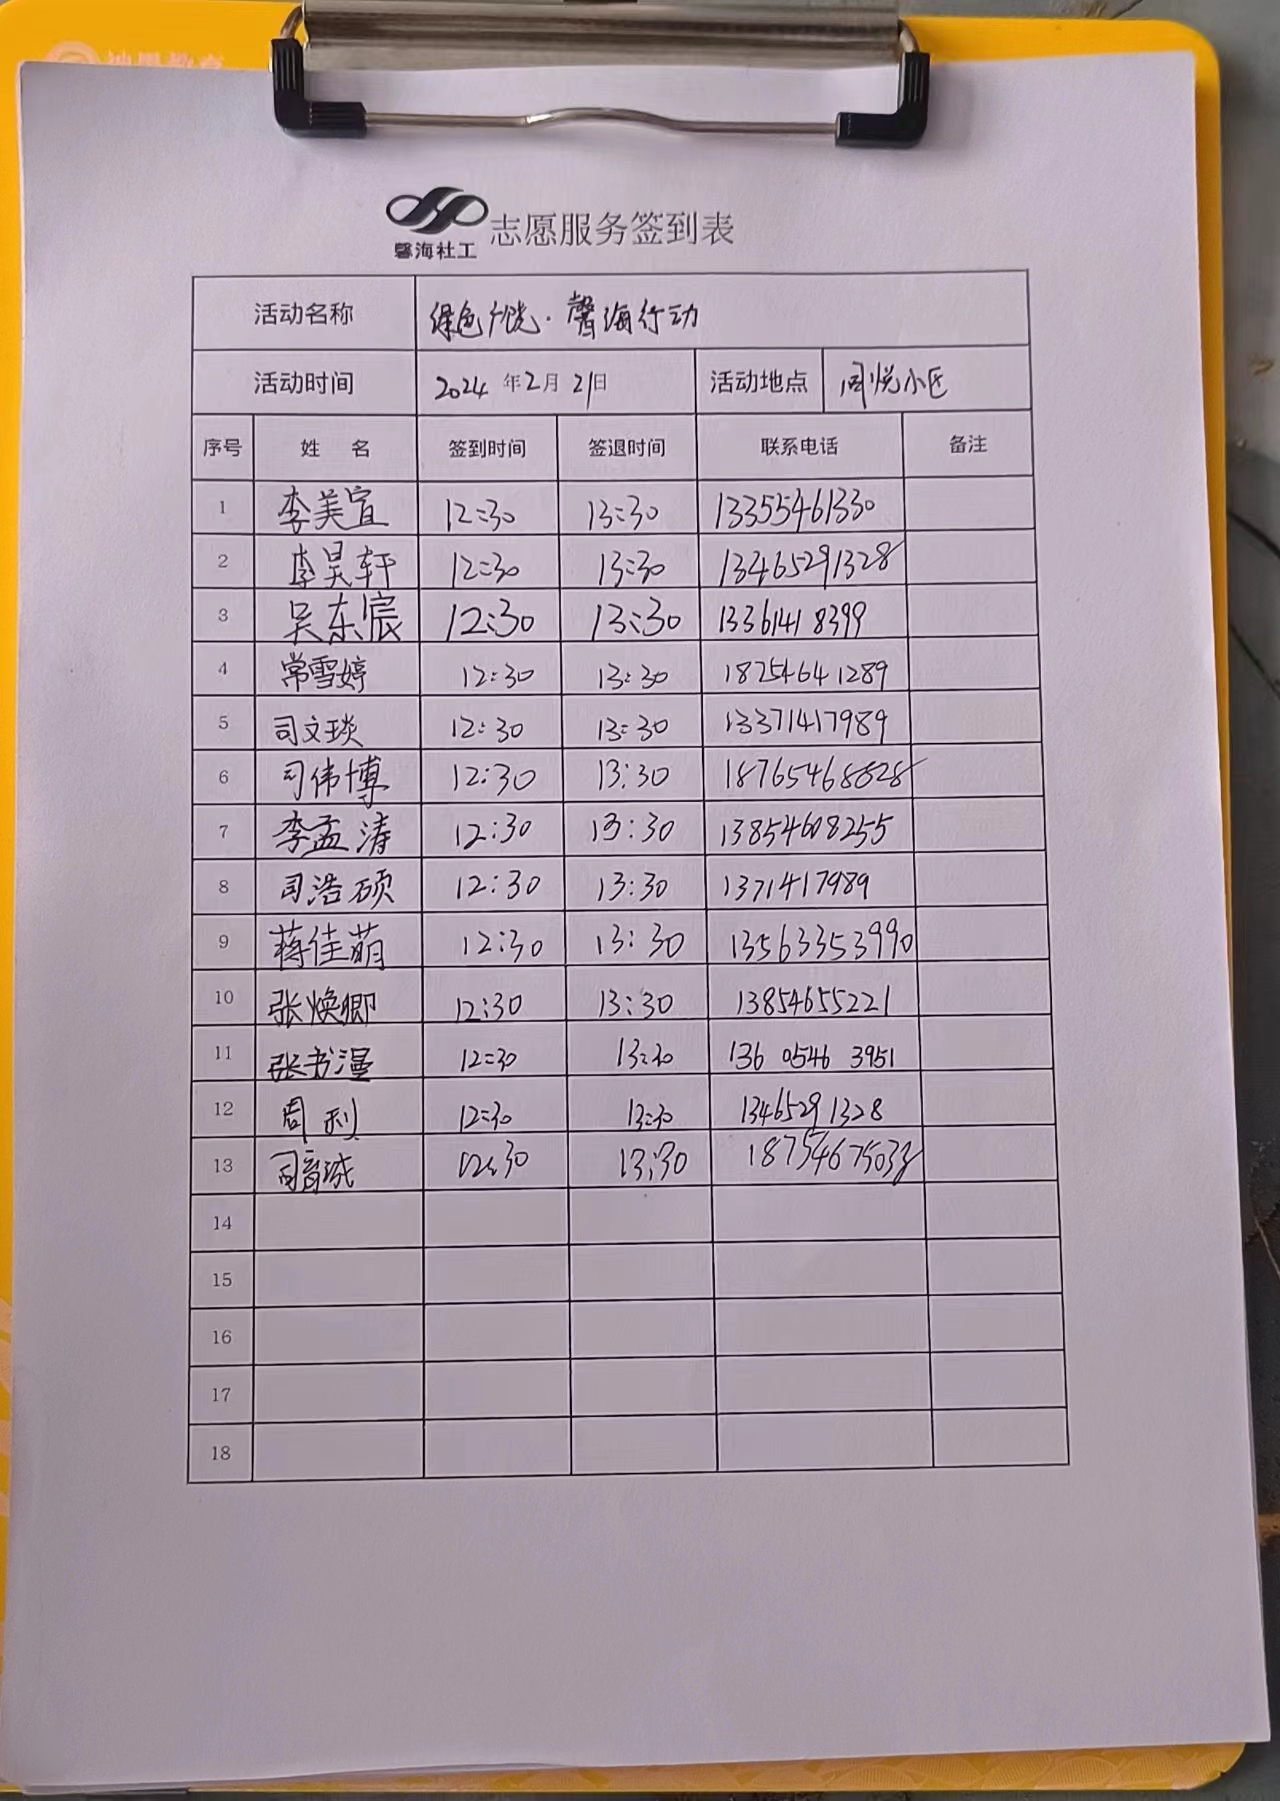 馨海社工 志愿服务签到表
活动名称 绿色 ·馨海行动
活动时间 2024年2月21日 活动地点 同悦小区
序号 姓 名 签到时间 签退时间 联系电话 备注
1 李美宜 12:30 13:30 13355461330
2 李昊轩 12:30 13:30 13465291328
3 吴东宸 12:30 13:30 13361418399
4 常雪婷 12:30 13:30 18254641289
5 司文琰 12:30 13:30 13371417989
6 司伟博 12:30 13:30 18765468828
7 李孟涛 12:30 13:30 13854608255
8 司浩硕 12:30 13:30 1371417989
9 蒋佳萌 12:30 13:30 13563353990
10 张焕卿 12:30 13:30 13854655221
11 张书漫 12:30 13:30 136 0546 3951
12 周利 12:30 13:30 13465291328
13 12:30 13:30
14
15
16
17
18